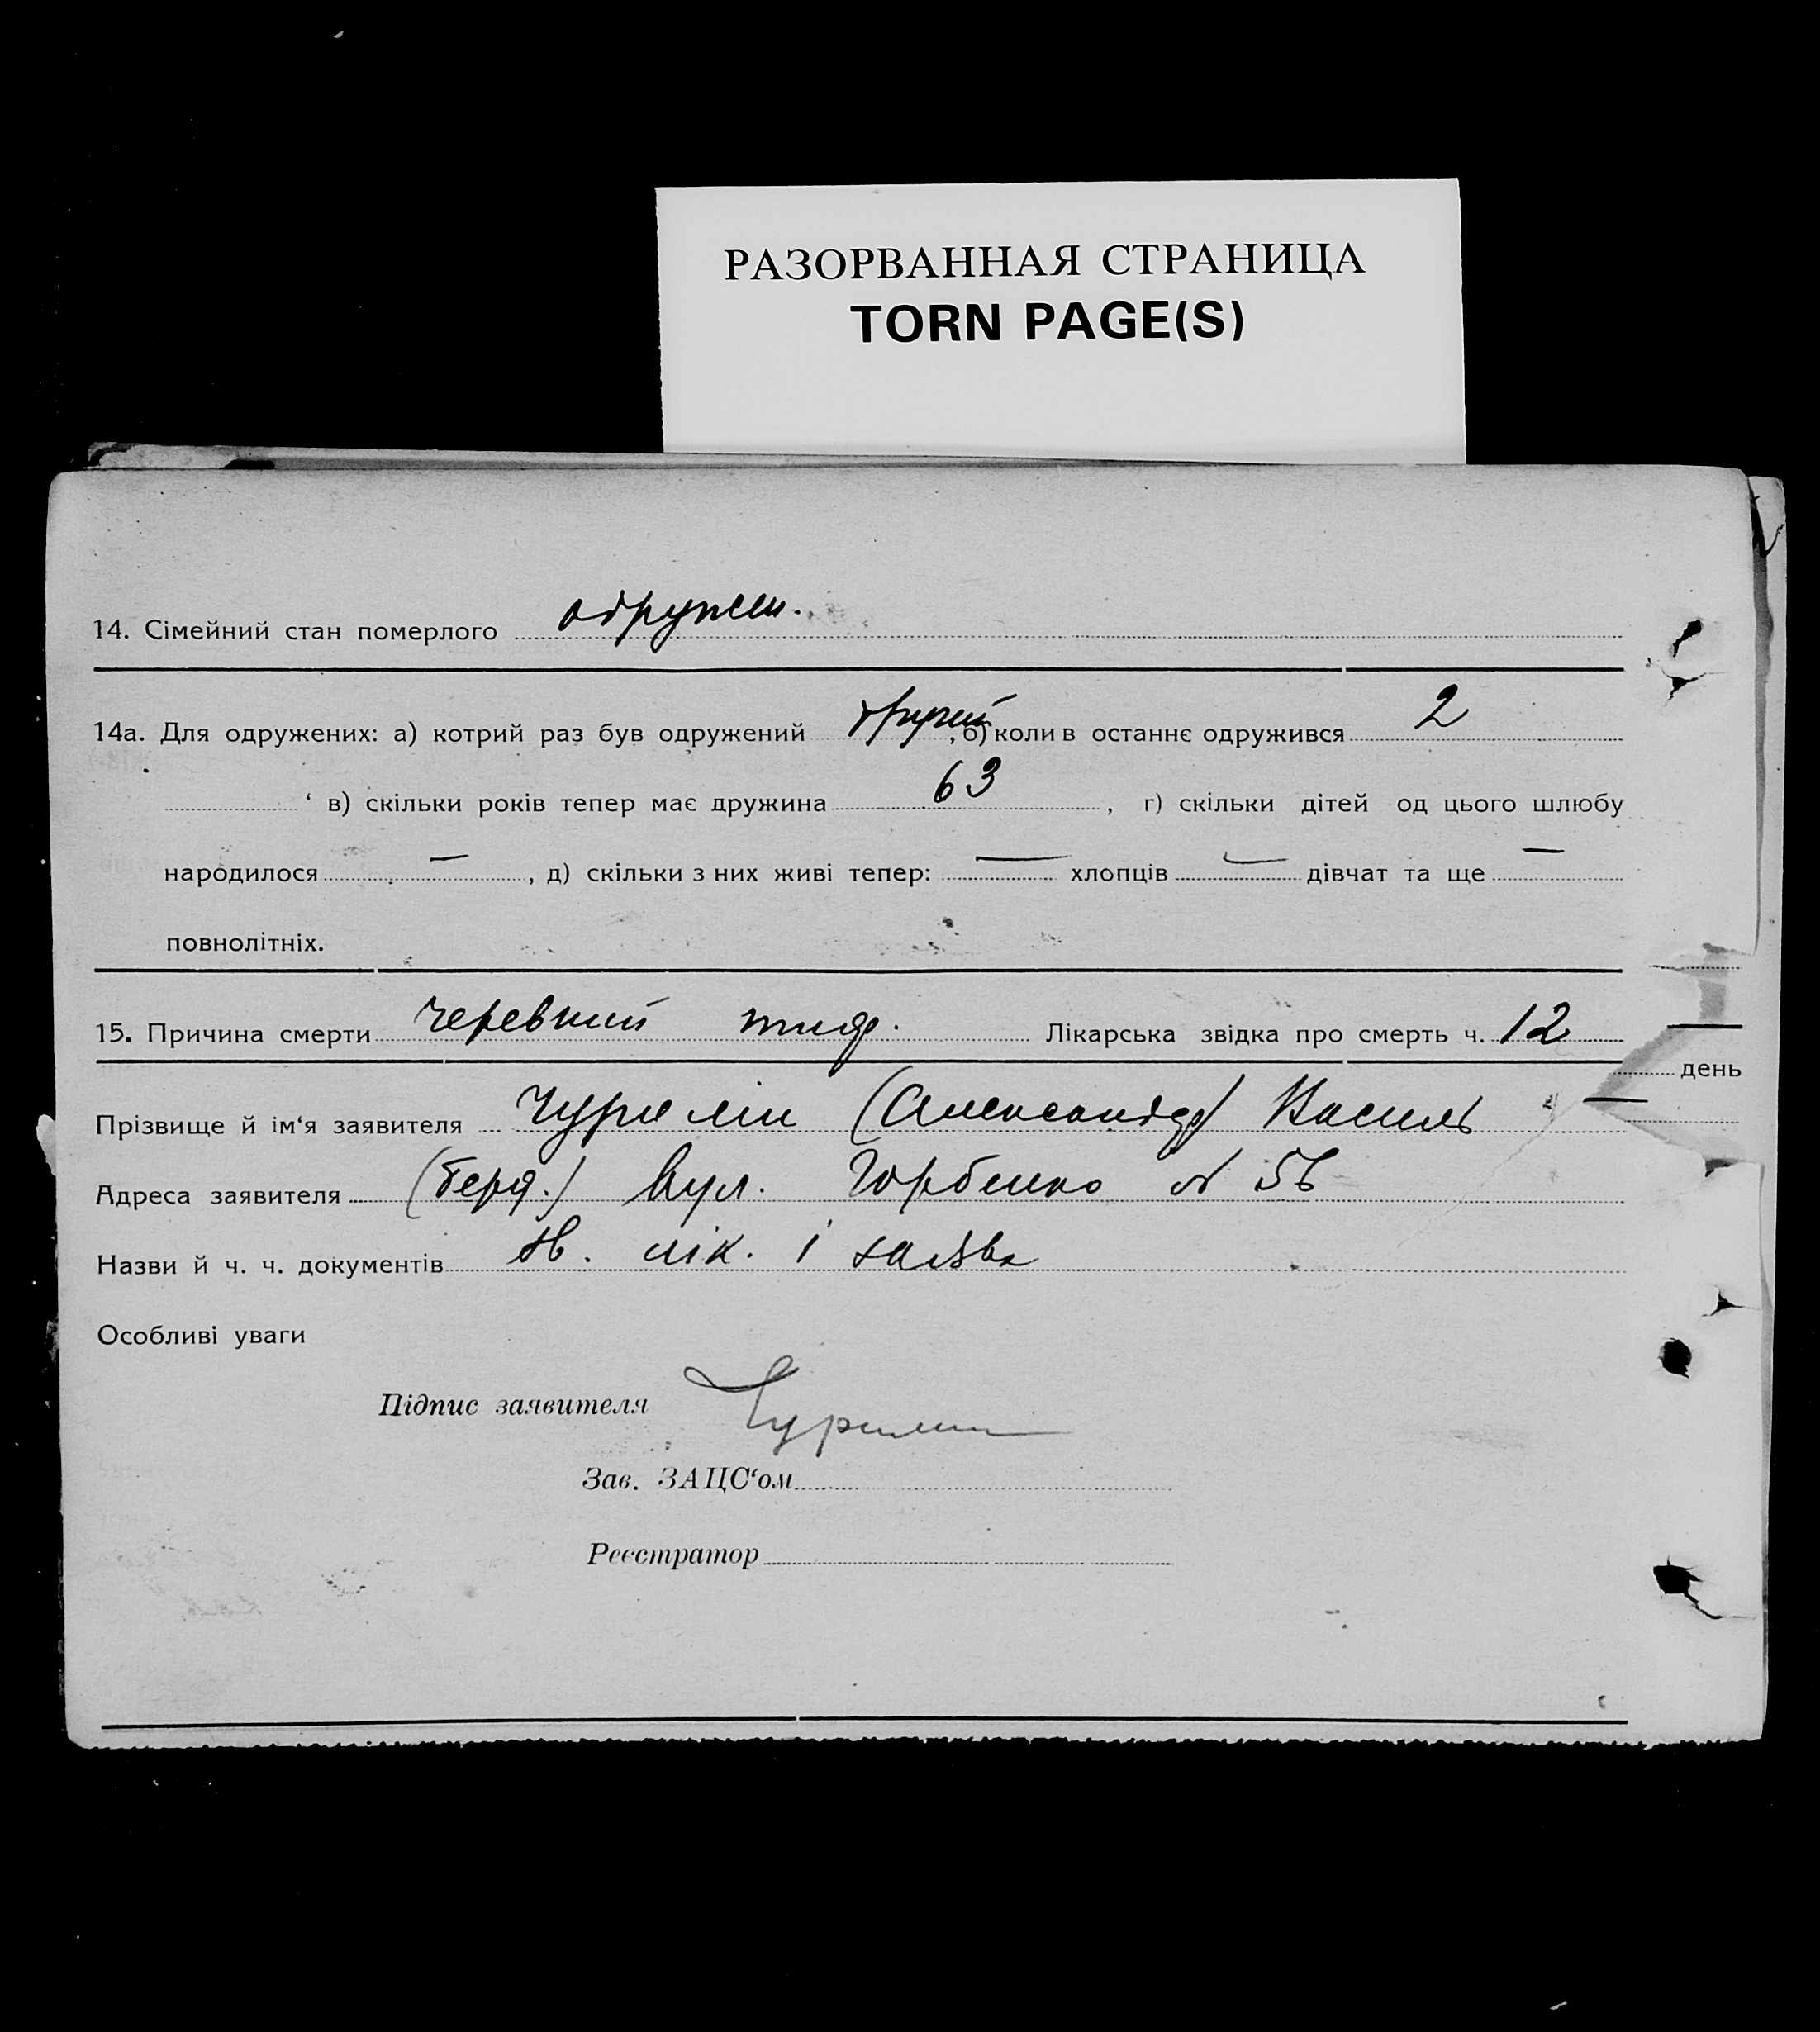 РАЗОРВАННАЯ СТРАНИЦА
TORN PAGE(S)
14. Сімейний стан померлого одружен.
14а. Для одружених: а) котрий раз був одружений другий, б) коли в останнє одружився 2
в) скільки років тепер має дружина 63, г) скільки дітей од цього шлюбу
народилося —, д) скільки з них живі тепер: — хлопців — дівчат та ще —
повнолітніх.
15. Причина смерти черевний тиф. Лікарська звідка про смерть ч. 12
день
Прізвище й ім‘я заявителя (Александр) Василь
Адреса заявителя (Берд.) вул. Горбенко № 56
Назви й ч. ч. документів лік. і заява
Особливі уваги
Підпис заявителя
Зав. ЗАЦС‘ом
Реєстратор